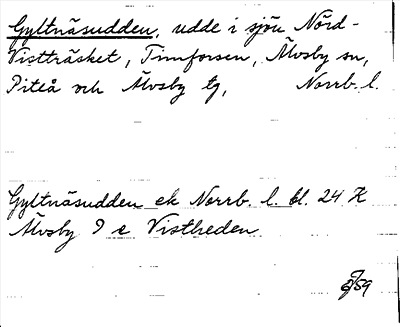 Gyltnäsudden, udde i sjön Nörd-
Vistträsket, Timforsen, Älvsby sn,
Piteå och Älvsby tg, Norrb. l.
Gyltnäsudden ek Norrb. l. bl. 24 K
Älvsby 9 e Vistheden
/59